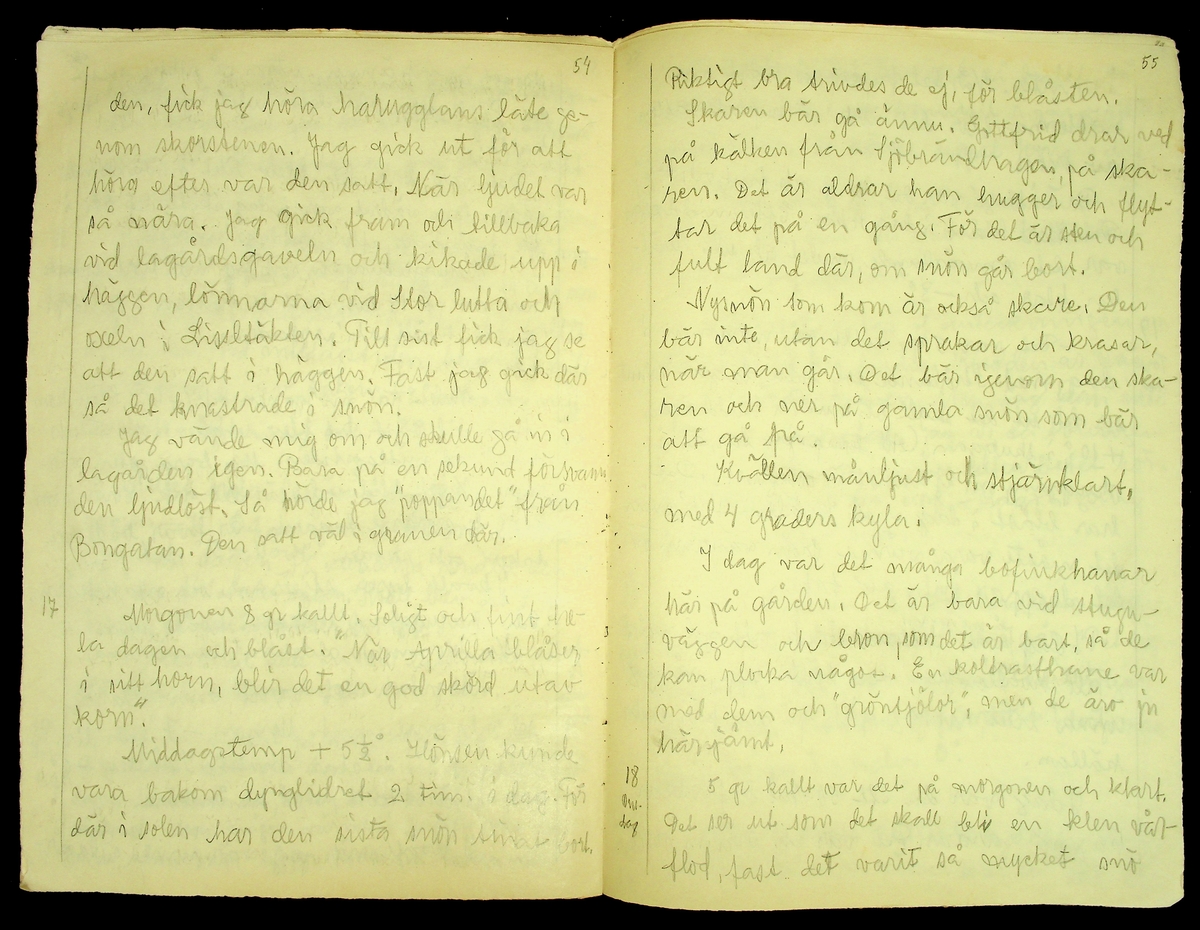 54
den, fick jag höra harugglans läte ge-
nom skorstenen. Jag gick ut för att
höra efter var den satt. När ljudet var
så nära. Jag gick fram och tillbaka
vid lagårdsgaveln och kikade upp i
häggen, lönnarna vid Stor lutta och
oxeln i Lissltäkten. Till sist fick jag se
att den satt i häggen. Fast jag gick där
så det knastrade i snön.
Jag vände mig om och skulle gå in i
lagården igen. Bara på en sekund försvann
den ljudlöst. Så hörde jag "poppandet" från
Bongatan. Den satt väl i granen där.
17
Morgonen 8 gr kallt. Soligt och fint he-
la dagen och blåst. "När Aprilla blåser
i sitt horn, blir det en god skörd utav
korn".
Middagstemp + 5½°. Hönsen kunde
vara bakom dynglidret 2 tim. i dag. För
där i solen har den sista snön tinat bort.
55
Riktigt bra trivdes de ej, för blåsten.
Skaren bär gå ännu. Gottfrid drar ved
på kälken från Sjöbrändhagen, på ska-
ren. Det är aldrar han hugger och flyt-
tar det på en gång. För det är sten och
fult land där, om snön går bort.
Nysnön som kom är också skare. Den
bär inte, utan det sprakar och krasar,
när man går. Det bär igenom den ska-
ren och ner på gamla snön som bär
att gå på.
Kvällen månljust och stjärnklart,
med 4 graders kyla.
I dag var det många bofinkhanar
här på gården. Det är bara vid stugu-
väggen och bron, som det är bart, så de
kan plocka något. En koltrasthane var
med dem och "gröntjölor", men de äro ju
här jämt.
18
Ons-
dag
5 gr kallt var det på morgonen och klart.
Det ser ut som det skall bli en klen vår-
flod, fast det varit så mycket snö